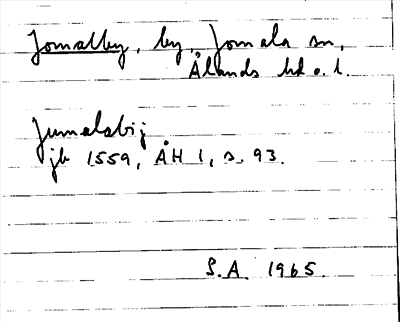 Jomalby, by, Jomala sn,
Ålands hd o. l.
Jumalabij
jb 1559, ÅH 1, s. 93.
S.A. 1965.